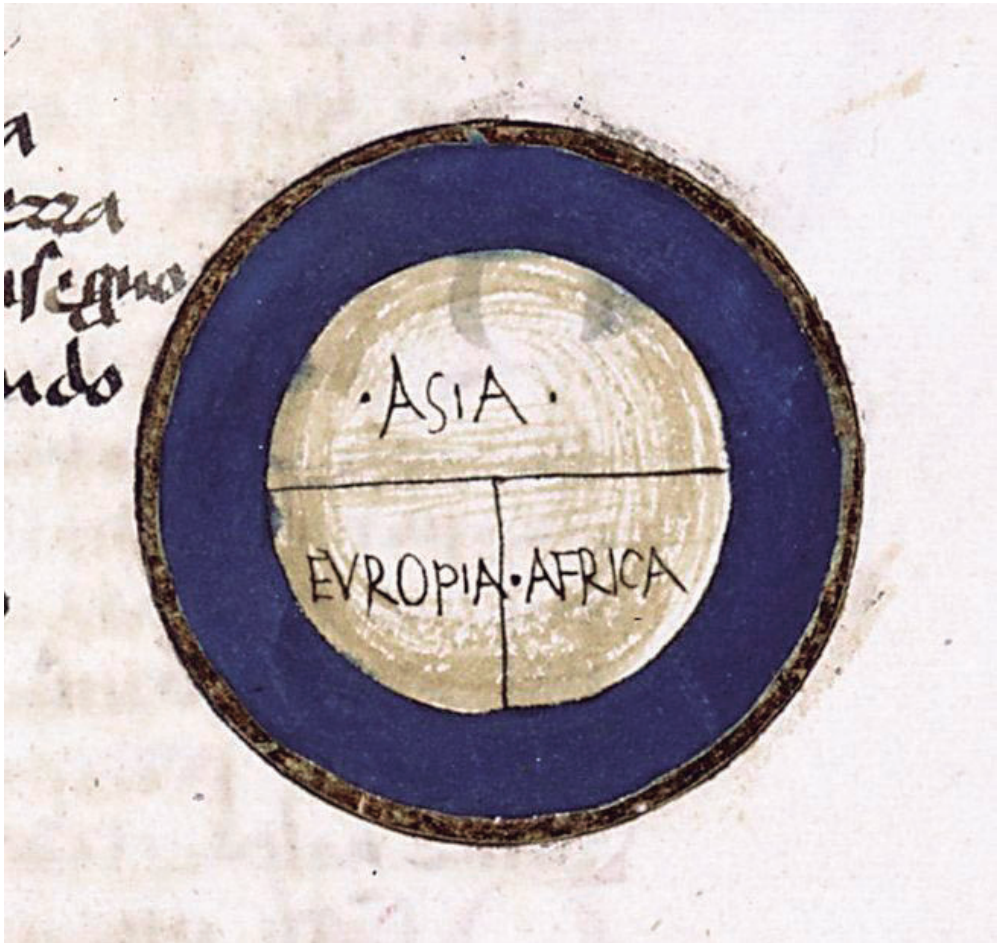 a
zza
segno
ndo
·ASIA·
EVROPIA·AFRICA